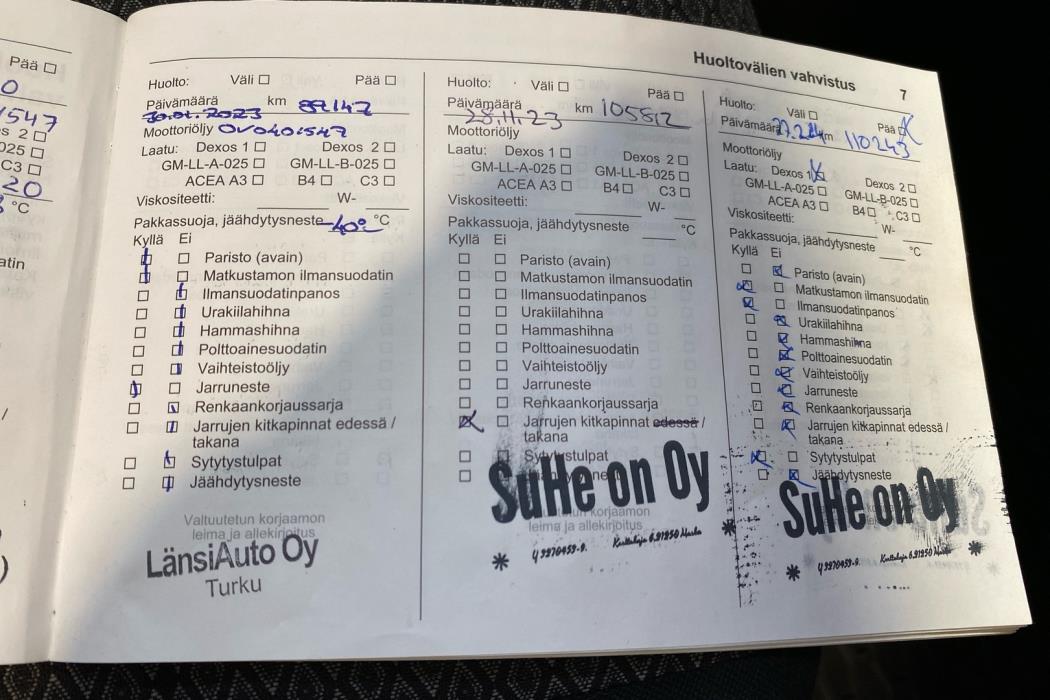 Pää ☐
0
1547
s 2 ☐
025 ☐
C3 ☐
20
°C
atin
Huoltovälien vahvistus 7
Huolto: Väli ☐ Pää ☐
Päivämäärä km 89147
Moottoriöljy OV0401547
Laatu: Dexos 1 ☐ Dexos 2 ☐
GM-LL-A-025 ☐ GM-LL-B-025 ☐
ACEA A3 ☐ B4 ☐ C3 ☐
Viskositeetti: W-
Pakkassuoja, jäähdytysneste -40° °C
Kyllä Ei
Paristo (avain)
Matkustamon ilmansuodatin
Ilmansuodatinpanos
Urakiilahihna
Hammashihna
Polttoainesuodatin
Vaihteistoöljy
Jarruneste
Renkaankorjaussarja
Jarrujen kitkapinnat edessä /
takana
Sytytystulpat
Jäähdytysneste
Valtuutetun korjaamon
leima ja allekirjoitus
LänsiAuto Oy
Turku
Huolto: Väli ☐ Pää ☐
Päivämäärä km 105812
28.11.23
Moottoriöljy
Laatu: Dexos 1 ☐ Dexos 2 ☐
GM-LL-A-025 ☐ GM-LL-B-025 ☐
ACEA A3 ☐ B4 ☐ C3 ☐
Viskositeetti: W-
Pakkassuoja, jäähdytysneste °C
Kyllä Ei
Paristo (avain)
Matkustamon ilmansuodatin
Ilmansuodatinpanos
Urakiilahihna
Hammashihna
Polttoainesuodatin
Vaihteistoöljy
Jarruneste
Renkaankorjaussarja
Jarrujen kitkapinnat edessä /
takana
Sytytystulpat
SuHe on Oy
leima ja allekirjoitus
Huolto: Väli ☐ Pää ☒
Päivämäärä 27.2.24 km 110243
Moottoriöljy
Laatu: Dexos 1 ☒ Dexos 2 ☐
GM-LL-A-025 ☐ GM-LL-B-025 ☐
ACEA A3 ☐ B4 ☐ C3 ☐
Viskositeetti: W-
Pakkassuoja, jäähdytysneste °C
Kyllä Ei
Paristo (avain)
Matkustamon ilmansuodatin
Ilmansuodatinpanos
Urakiilahihna
Hammashihna
Polttoainesuodatin
Vaihteistoöljy
Jarruneste
Renkaankorjaussarja
Jarrujen kitkapinnat edessä /
takana
Sytytystulpat
Jäähdytysneste
SuHe on Oy